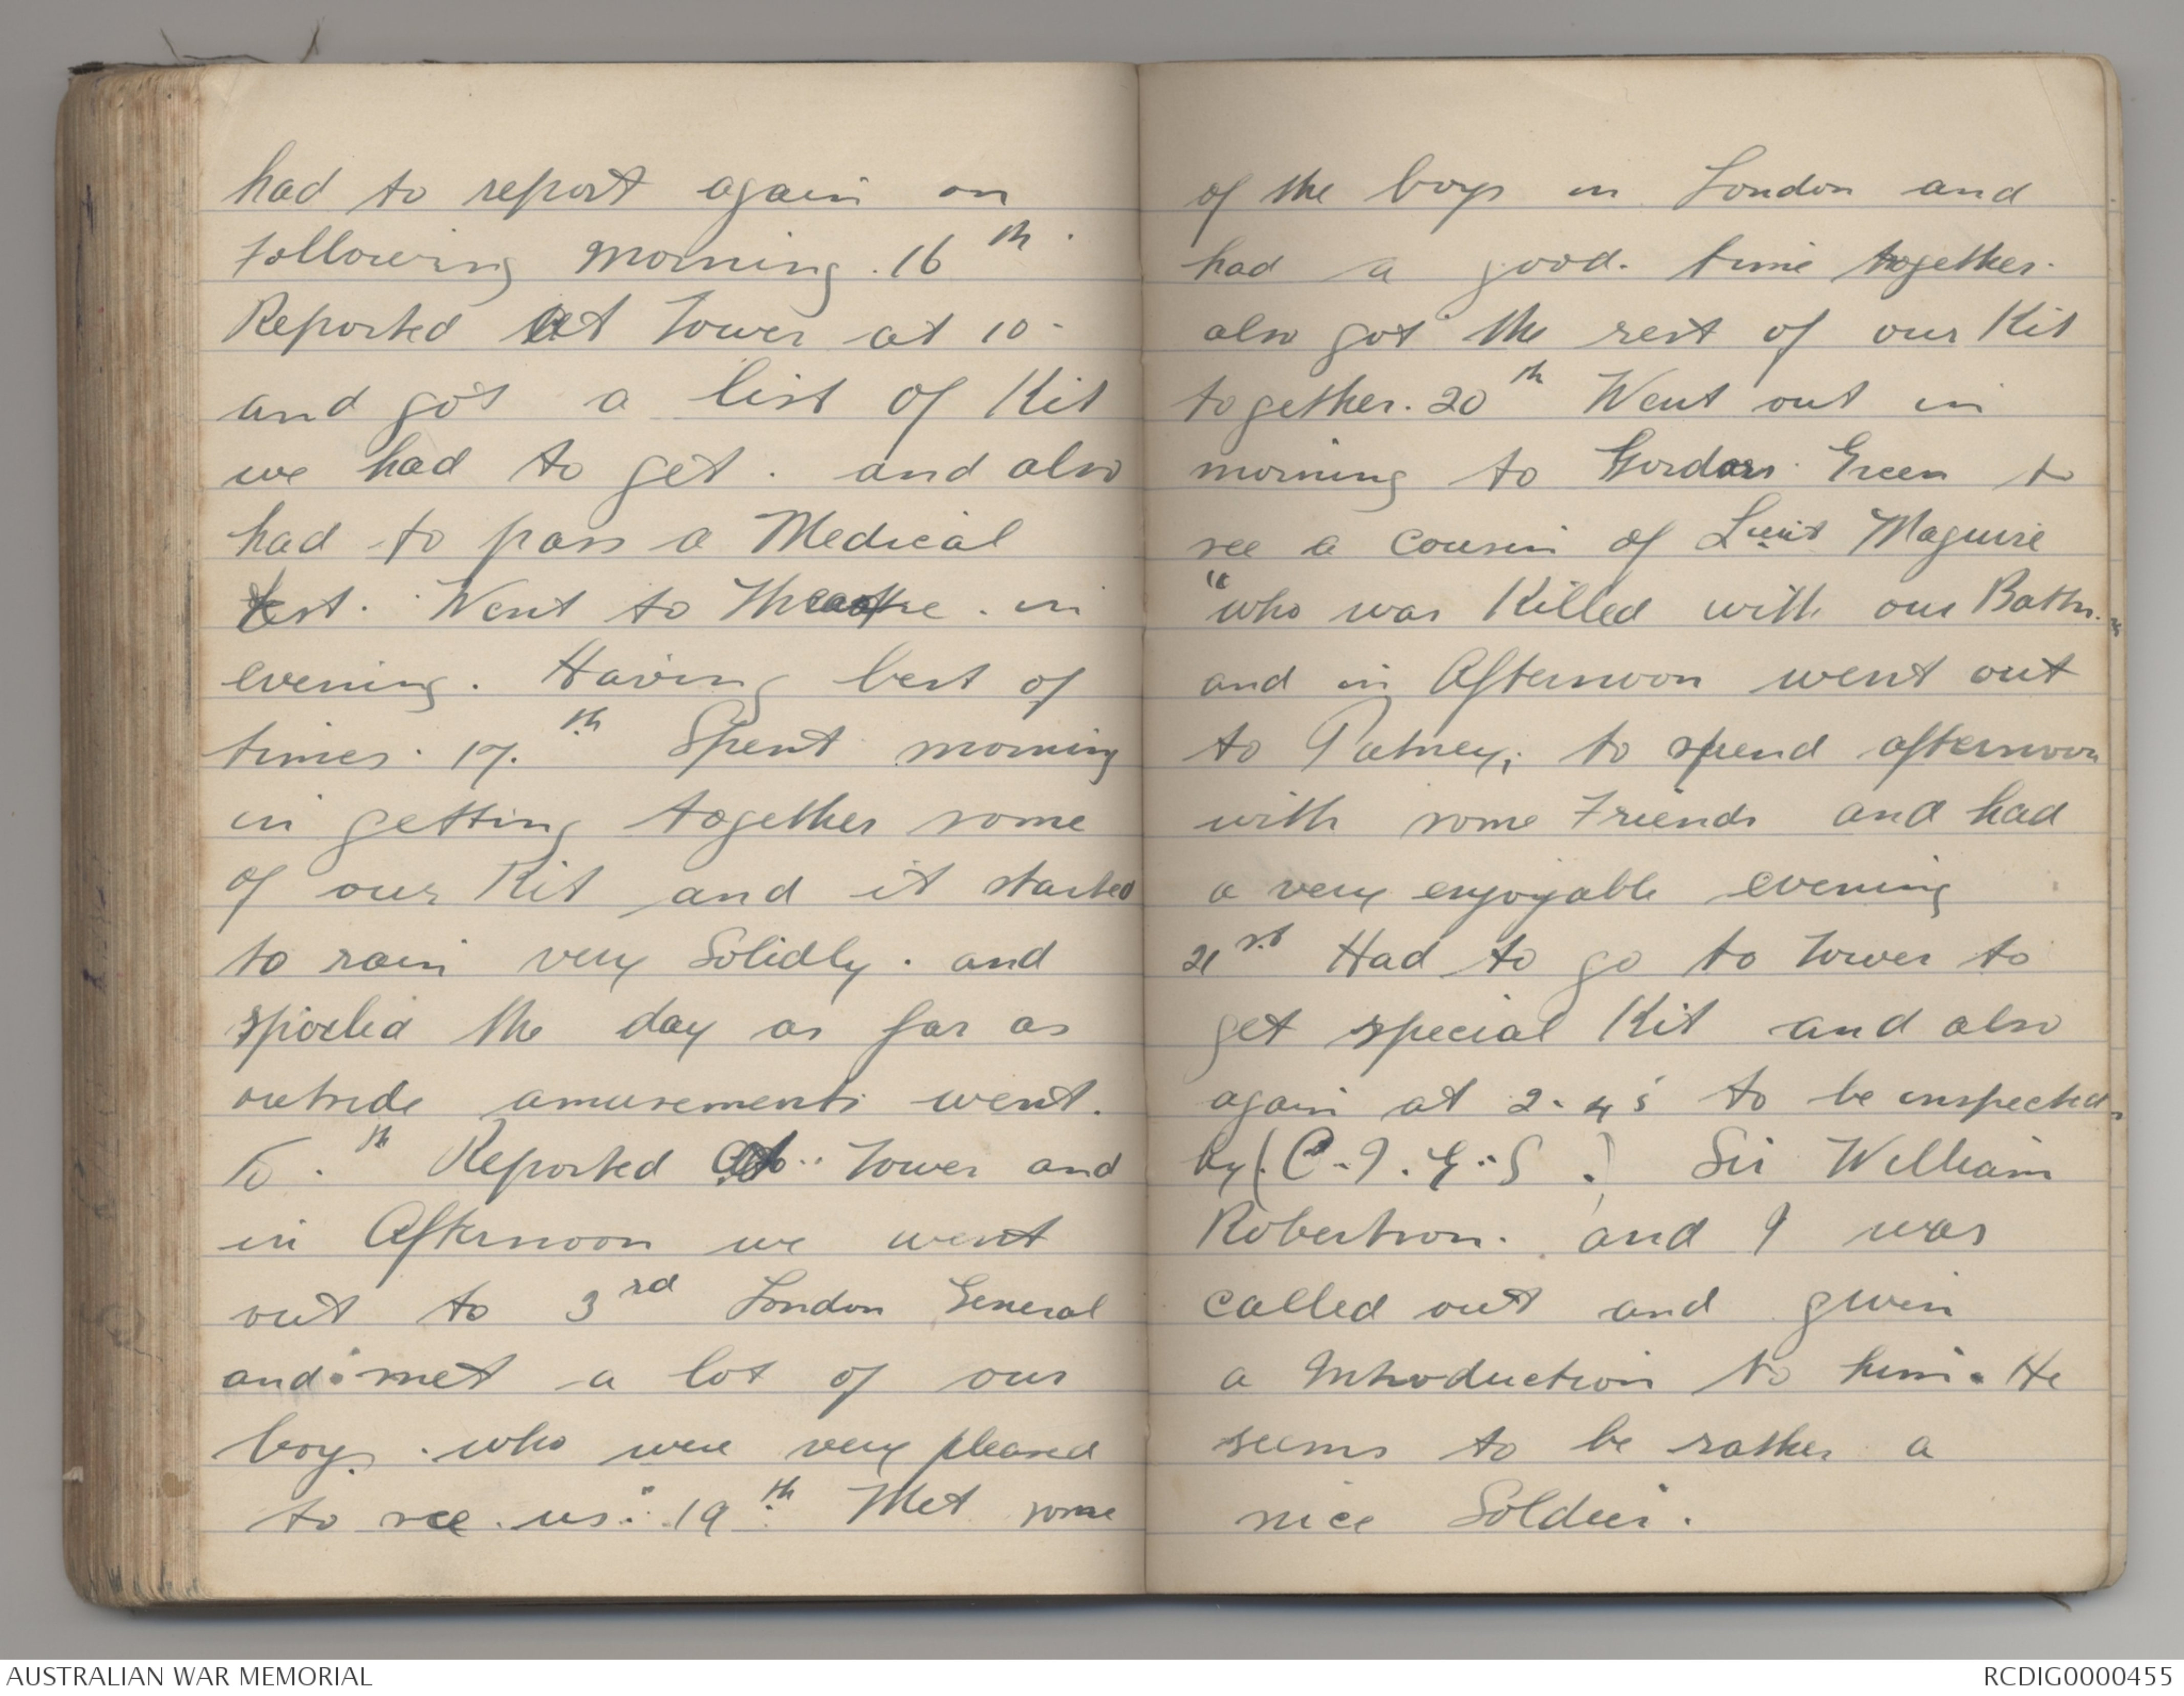 had to report again on
following morning. 16th.
Reported at Tower at 10-
and got a list of Kit
we had to get. and also
had to pass a Medical
test. Went to Theatre. in
evening. Having best of
times. 17.th Spent morning
in getting together some
of our Kit and it started
to rain very Solidly. and
spoiled the day as far as
outside amusements went.
th Reported at Tower and
in Afternoon we went
out to 3rd London General
and met a lot of our
boys. who were very pleased
to see us. 19th Met some
of the boys in London and
had a good. time together.
also got the rest of our Kit
together. 20th Went out in
morning to Green to
see a cousin of Lieut Maguire
"who was Killed with our Battn.
and in Afternoon went out
to Putney; to spend afternoon
with some Friends and had
a very enjoyable evening
21st Had to go to Tower to
get special Kit and also
again at 2-45 to be inspected
by (C.I.G.S.) Sir William
Robertson. and I was
called out and given
a Introduction to him. He
seems to be rather a
nice Soldier.
AUSTRALIAN WAR MEMORIAL
RCDIG0000455